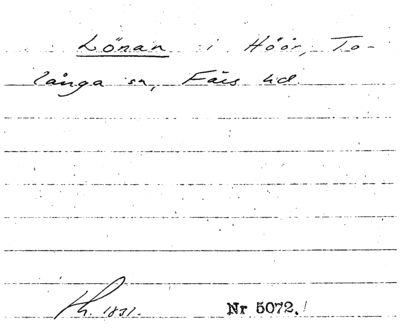 Lönan i Höör, To-
långa sn, Färs hd.
Nr 5072.